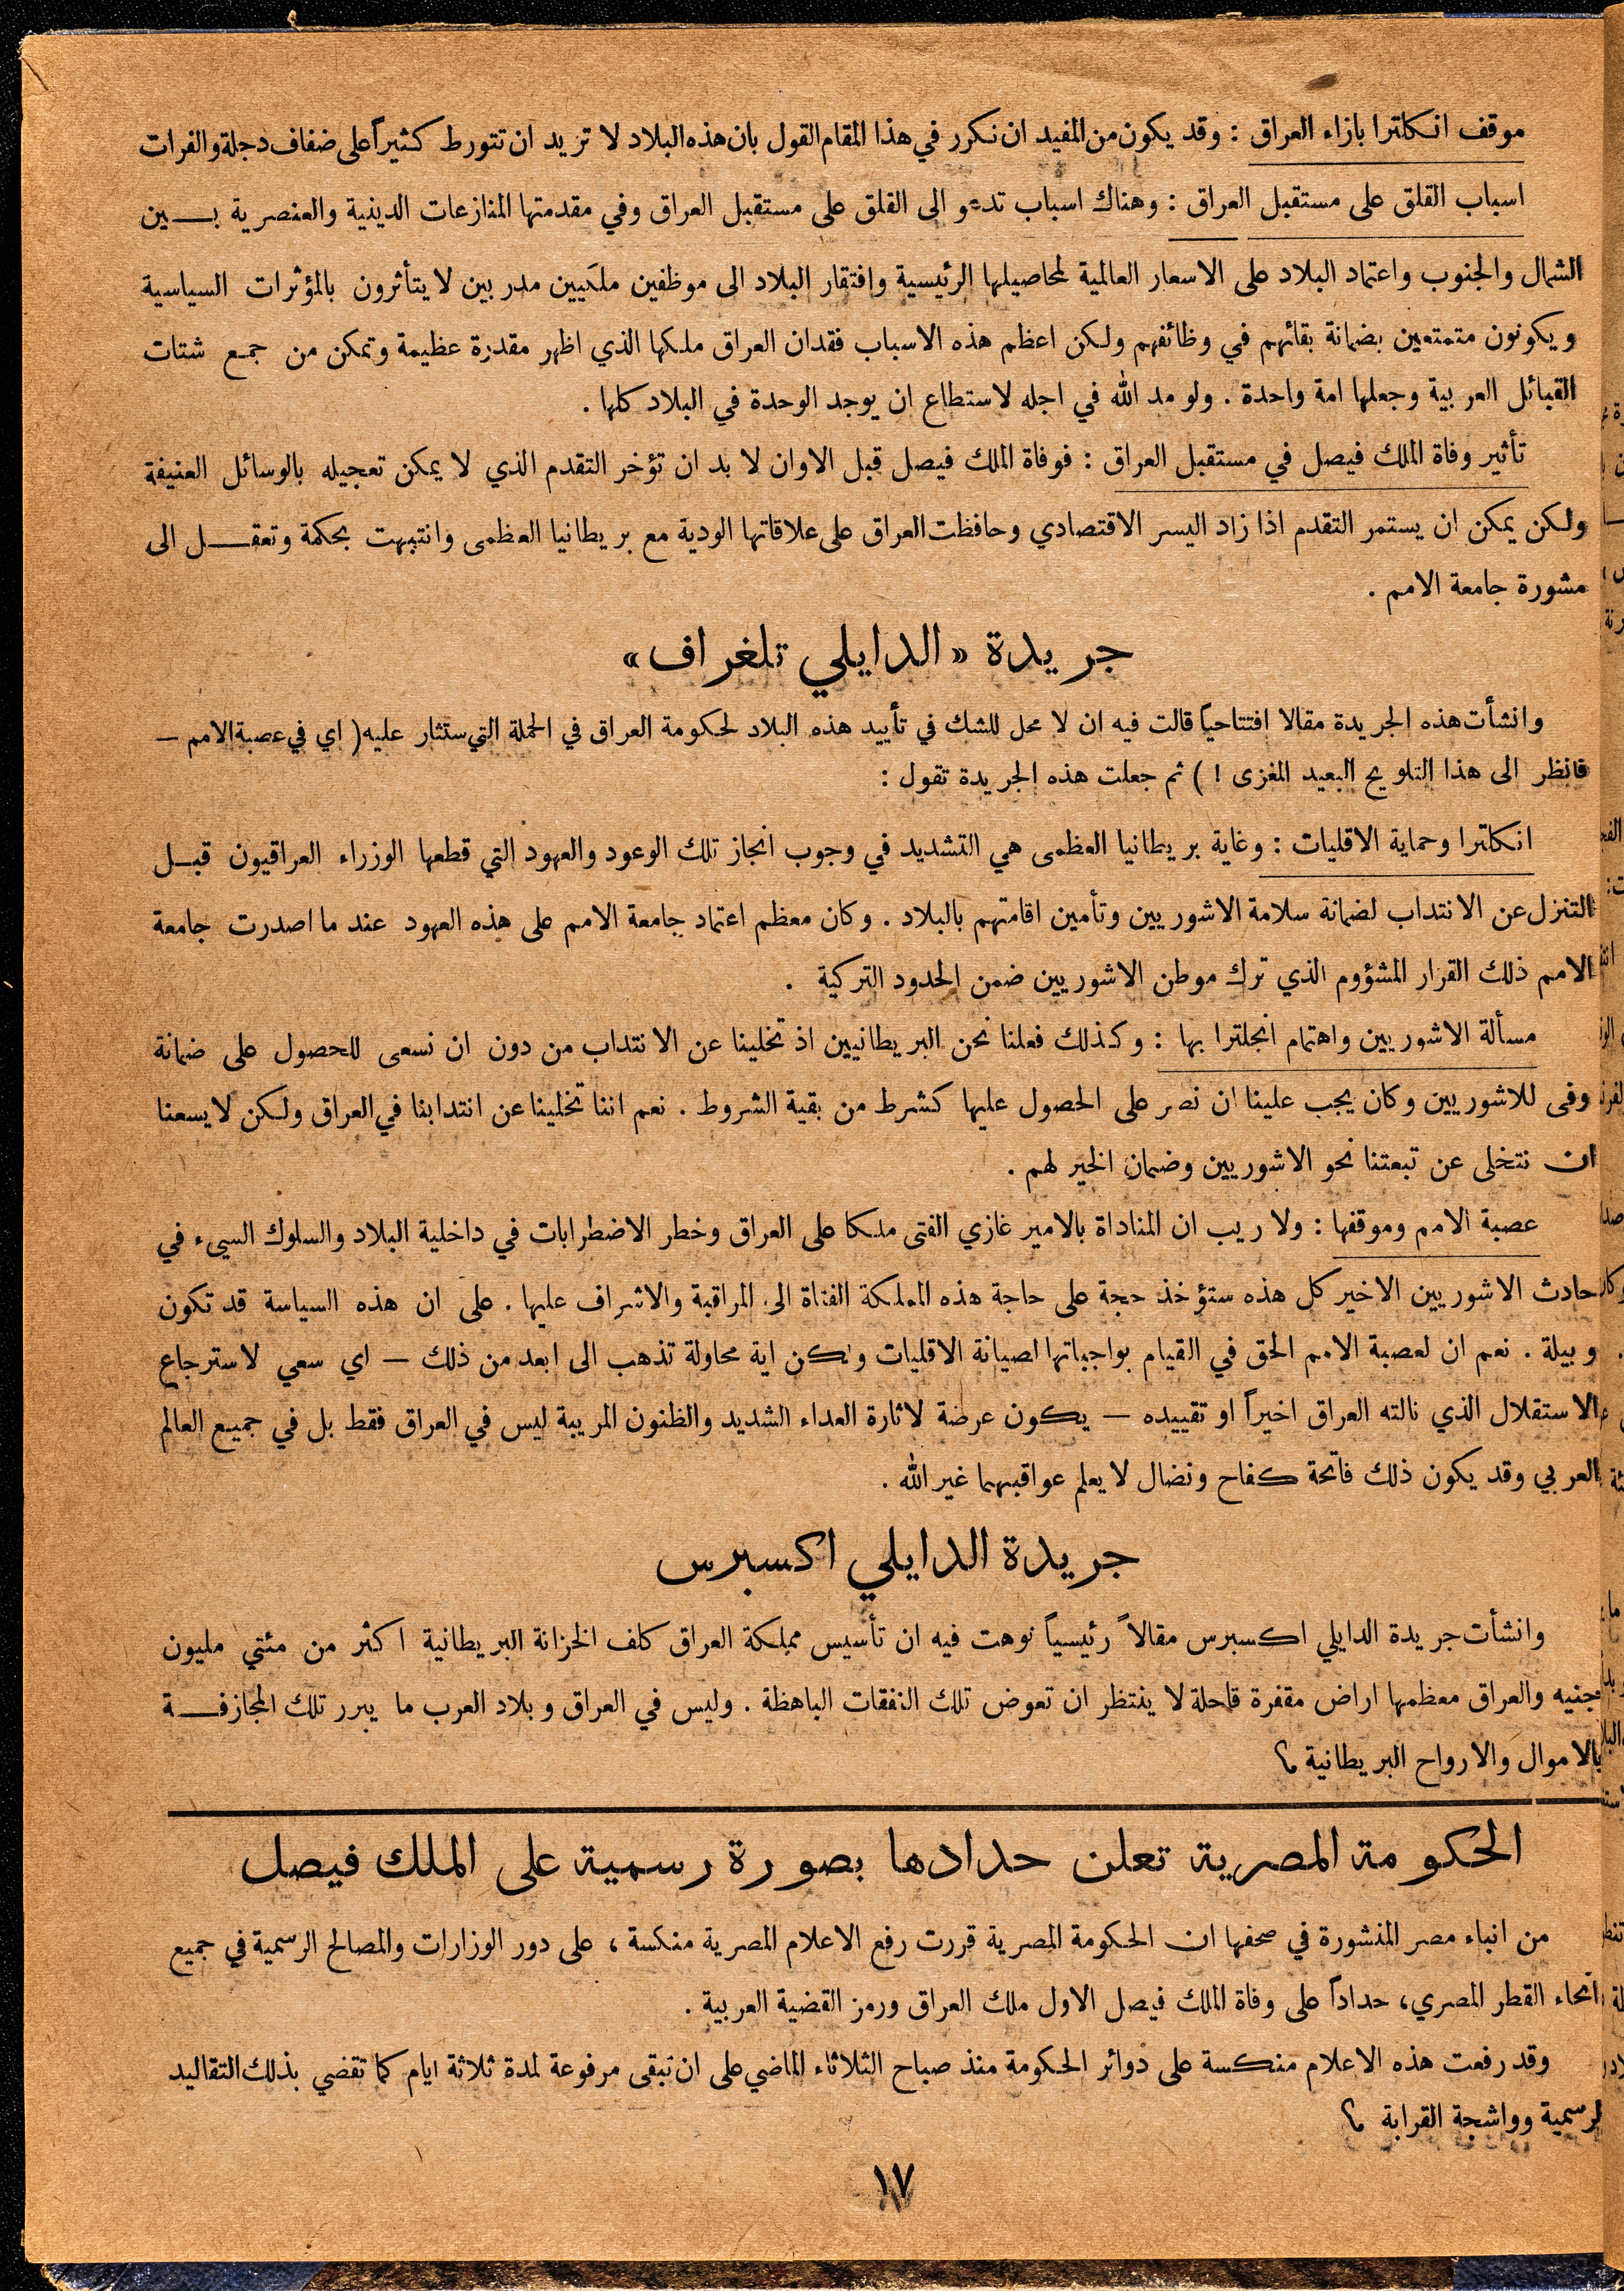 موقف انكلترا بازاء العراق : وقد يكون من المفيد ان نكرر في هذا المقام القول بان هذه البلاد لا تريد ان تتورط كثيراً على ضفاف دجلة والفرات
اسباب القلق على مستقبل العراق : وهناك اسباب تدعو الى القلق على مستقبل العراق وفي مقدمتها المنازعات الدينية والعنصرية بين
الشمال والجنوب واعتماد البلاد على الاسعار العالمية لمحاصيلها الرئيسية وافتقار البلاد الى موظفين ملكيين مدربين لا يتأثرون بالمؤثرات السياسية
ويكونون متمتعين بضمانة بقائهم في وظائفهم ولكن اعظم هذه الاسباب فقدان العراق ملكها الذي اظهر مقدرة عظيمة وتمكن من جمع شتات
القبائل العربية وجعلها امة واحدة . ولو مد الله في اجله لاستطاع ان يوجد الوحدة في البلاد كلها .
تأثير وفاة الملك فيصل في مستقبل العراق : فوفاة الملك فيصل قبل الاوان لا بد ان تؤخر التقدم الذي لا يمكن تعجيله بالوسائل العنيفة
ولكن يمكن ان يستمر التقدم اذا زاد اليسر الاقتصادي وحافظت العراق على علاقاتها الودية مع بريطانيا العظمى وانتبهت بحكمة وتعقل الى
مشورة جامعة الامم .
جريدة «الدايلي تلغراف»
وانشأت هذه الجريدة مقالا افتتاحياً قالت فيه ان لا محل للشك في تأييد هذه البلاد لحكومة العراق في الحملة التي ستثار عليه ( اي في عصبة الامم —
فانظر الى هذا التلويح البعيد المغزى ! ) ثم جعلت هذه الجريدة تقول :
انكلترا وحماية الاقليات : وغاية بريطانيا العظمى هي التشديد في وجوب انجاز تلك الوعود والعهود التي قطعها الوزراء العراقيون قبل
التنزل عن الانتداب لضمانة سلامة الاشوريين وتأمين اقامتهم بالبلاد . وكان معظم اعتماد جامعة الامم على هذه العهود عند ما اصدرت جامعة
الامم ذلك القرار المشؤوم الذي ترك موطن الاشوريين ضمن الحدود التركية .
مسألة الاشوريين واهتمام انجلترا بها : وكذلك فعلنا نحن البريطانيين اذ تخلينا عن الانتداب من دون ان نسعى للحصول على ضمانة
وفى للاشوريين وكان يجب علينا ان نصر على الحصول عليها كشرط من بقية الشروط . نعم اننا تخلينا عن انتدابنا في العراق ولكن لا يسعنا
ان نتخلى عن تبعتنا نحو الاشوريين وضمان الخير لهم .
عصبة الامم وموقفها : ولا ريب ان المناداة بالامير غازي الفتى ملكا على العراق وخطر الاضطرابات في داخلية البلاد والسلوك السيء في
حادث الاشوريين الاخير كل هذه ستؤخذ حجة على حاجة هذه المملكة الفتاة الى المراقبة والاشراف عليها . على ان هذه السياسة قد تكون
وبيلة . نعم ان لعصبة الامم الحق في القيام بواجباتها لصيانة الاقليات ولكن اية محاولة تذهب الى ابعد من ذلك — اي سعي لاسترجاع
الاستقلال الذي نالته العراق اخيراً او تقييده — يكون عرضة لاثارة العداء الشديد والظنون المريبة ليس في العراق فقط بل في جميع العالم
العربي وقد يكون ذلك فاتحة كفاح ونضال لا يعلم عواقبهما غير الله .
جريدة الدايلي اكسبرس
وانشأت جريدة الدايلي اكسبرس مقالاً رئيسياً نوهت فيه ان تأسيس مملكة العراق كلف الخزانة البريطانية اكثر من مئتي مليون
جنيه والعراق معظمها اراض مقفرة قاحلة لا ينتظر ان تعوض تلك النفقات الباهظة . وليس في العراق وبلاد العرب ما يبرر تلك المجازفة
بالاموال والارواح البريطانية ؟
الحكومة المصرية تعلن حدادها بصورة رسمية على الملك فيصل
من انباء مصر المنشورة في صحفها ان الحكومة المصرية قررت رفع الاعلام المصرية منكسة ، على دور الوزارات والمصالح الرسمية في جميع
انحاء القطر المصري ، حداداً على وفاة الملك فيصل الاول ملك العراق ورمز القضية العربية .
وقد رفعت هذه الاعلام منكسة على دوائر الحكومة منذ صباح الثلاثاء الماضي على ان تبقى مرفوعة لمدة ثلاثة ايام كما تقضي بذلك التقاليد
لرسمية وواشجة القرابة ؟
١٧